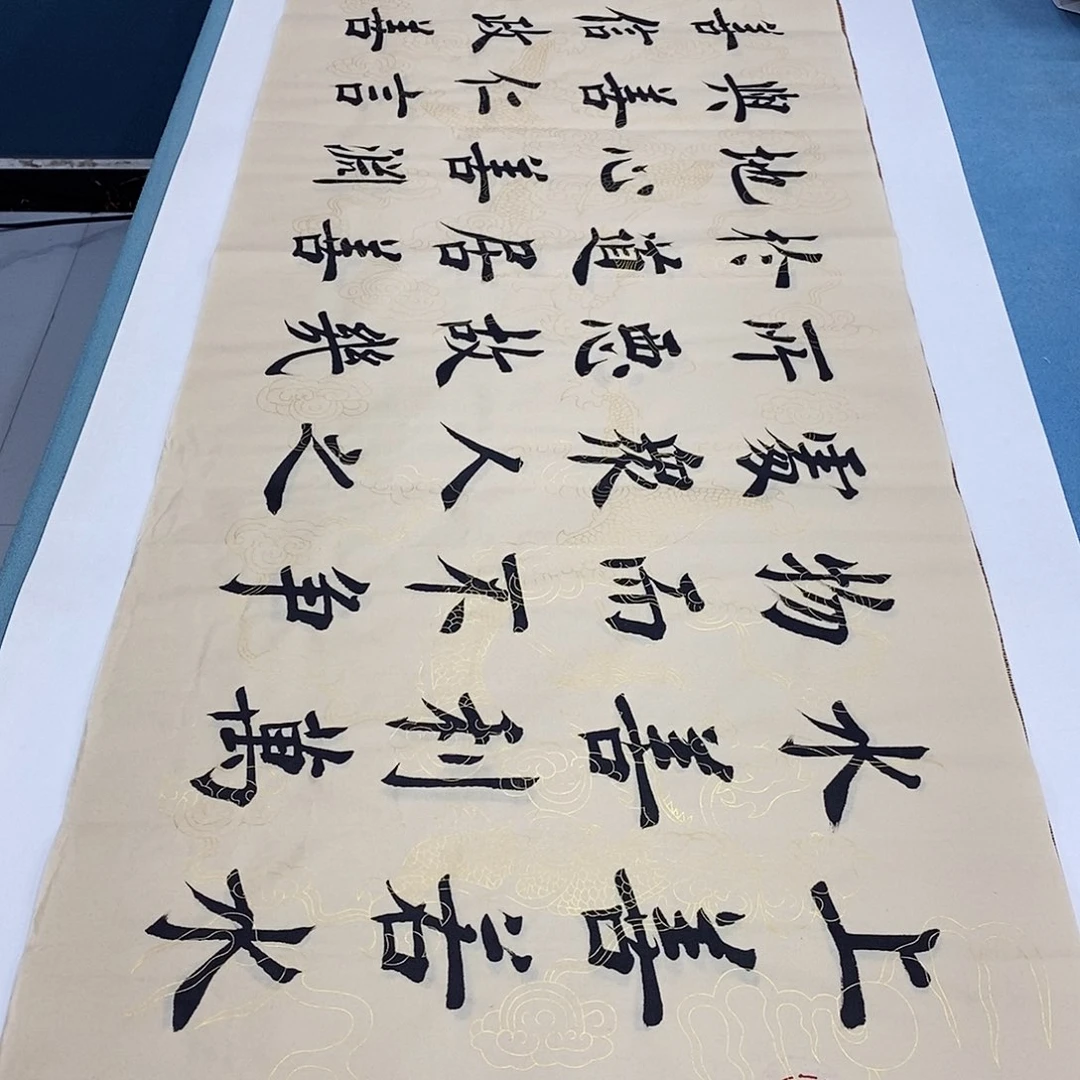 上善若水
水善利萬
物而不争
處衆人之
所惡故幾
於道居善
地心善淵
與善仁言
善信政善